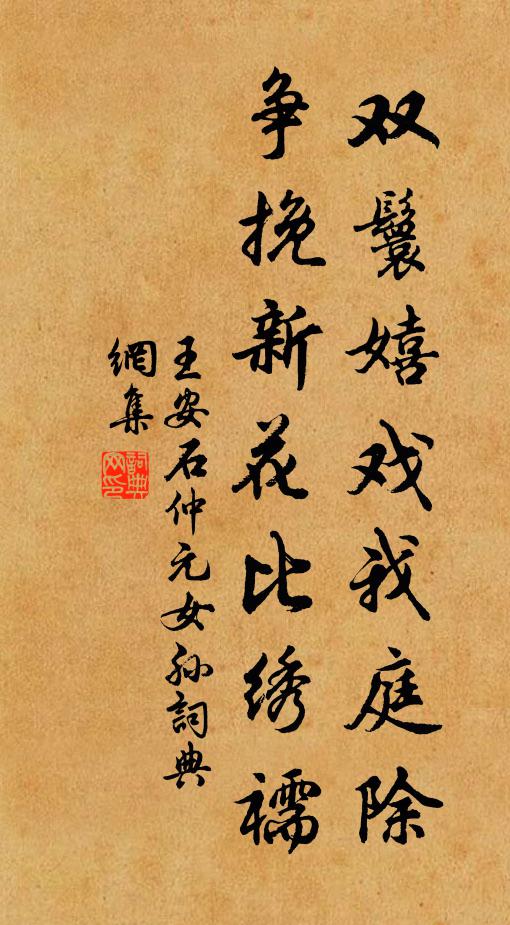 双鬟嬉戏我庭除
争挽新花比绣襦
王安石仲元女孙詞典
網集
詞典
网印